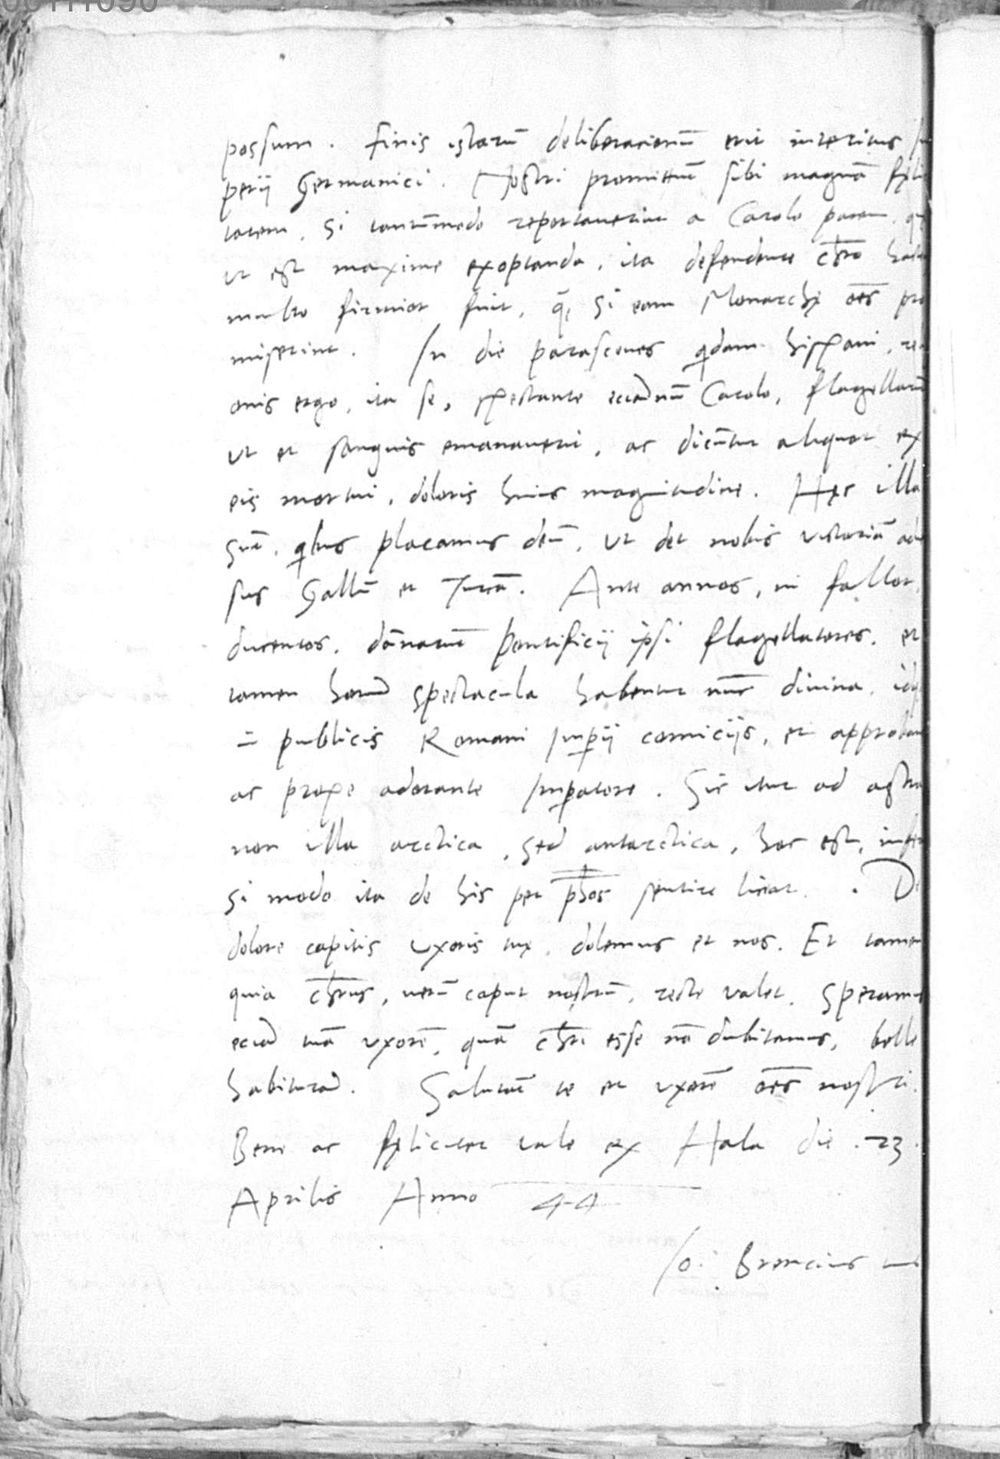 possum. Finis istarū deliberacionū erit interitus
perij Germanici. Nostri promittūt sibi magnā
tatem, si tantūmodo reportaverint a Carolo pacem,
ut est maxime exoptanda, ita defendente chro
multo firmior fuit, qā si eam Monarchę oēs pro
miserint. In die parasceves qdam hispani,
onis ergo, ita se, spectante eciam Carolo, flagellarūt
ut et sanguis emanaverit, ac dicūtur aliquot ex
eis mortui, doloris huius magnitudine. Hęc illa
sūt, qbus placamus deū, ut det nobis victoriā
sus Gallū et Turcā. Ante annos, ni fallor,
ducentos, dānarūt pontificij ipsi flagellatores, et
tamen horum spectacula habentur nūc divina,
in publicis Romani Imperij comicijs, et
ac prope adorante Imperatore. Sic itur ad astra
non illa arctica, sed antarctica, hoc est,
si modo ita de his per phos sentire liceat. De
dolore capitis uxoris tuę, dolemus et nos. Et tamen
quia chrus, verū caput nostrū, recte valet, speramus
eciam tuā uxorē, quā chri esse nō dubitamus, belle
habituram. Salutāt te et uxorē oēs nostri.
Bene ac fęliciter vale ex Hala die .23.
Aprilis Anno 44
Io: Brencius